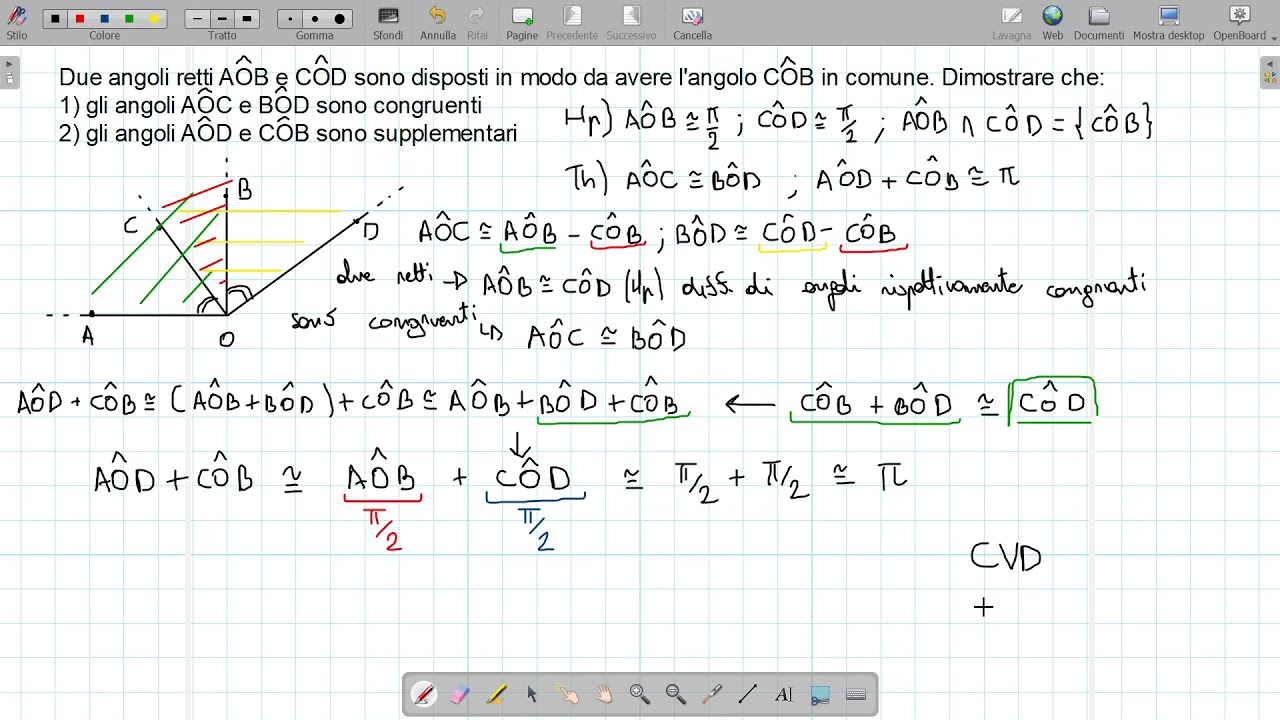 Stilo Colore Tratto Gomma Sfondi Annulla Rifai Pagine Precedente Successivo Cancella Lavagna Web Documenti Mostra desktop OpenBoard
Due angoli retti AÔB e CÔD sono disposti in modo da avere l'angolo CÔB in comune. Dimostrare che:
1) gli angoli AÔC e BÔD sono congruenti
2) gli angoli AÔD e CÔB sono supplementari
Hp) AÔB ≅ π/2 ; CÔD ≅ π/2 ; AÔB ∩ CÔD = {CÔB}
Th) AÔC ≅ BÔD ; AÔD + CÔB ≅ π
B
C
D
A
O
AÔC ≅ AÔB - CÔB ; BÔD ≅ CÔD - CÔB
due retti → AÔB ≅ CÔD (Hp) diff. di angoli rispettivamente congruenti
sono congruenti ↳ AÔC ≅ BÔD
AÔD + CÔB ≅ (AÔB + BÔD) + CÔB ≅ AÔB + BÔD + CÔB ← CÔB + BÔD ≅ CÔD
↓
AÔD + CÔB ≅ AÔB + CÔD ≅ π/2 + π/2 ≅ π
π/2 π/2
CVD
+
AI